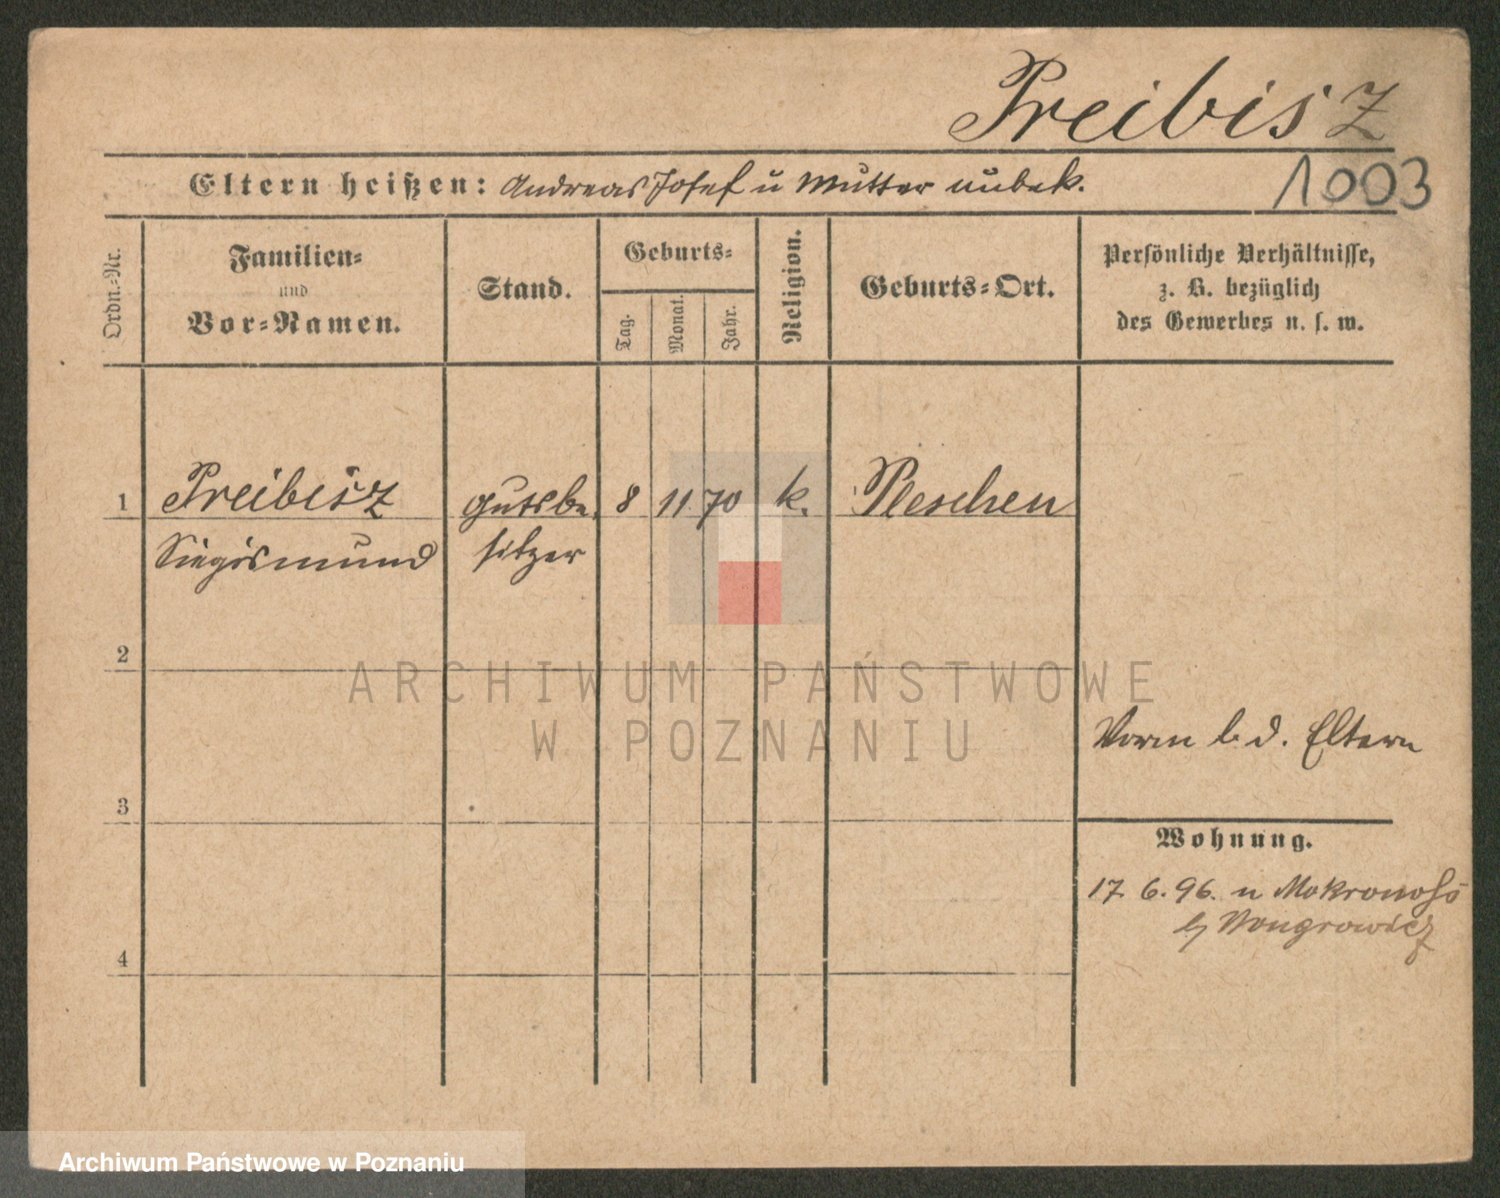 Preibisz
1003
Eltern heißen: Andreas Josef u Mutter unbek.
Ordn.-Nr.
Familien-
und
Vor-Namen.
Stand.
Geburts-
Tag.
Monat.
Jahr.
Religion.
Geburts-Ort.
Persönliche Verhältnisse,
z. B. bezüglich
des Gewerbes u. s. w.
1 Preibisz Gutsbe- 8 11 70 k. Pleschen
Siegismund sitzer
2
ARCHIWUM PAŃSTWOWE
W POZNANIU
Vorm b. d. Eltern
3
Wohnung.
17. 6. 96. n Mokronoß
b/ Wongrowicz
4
Archiwum Państwowe w Poznaniu